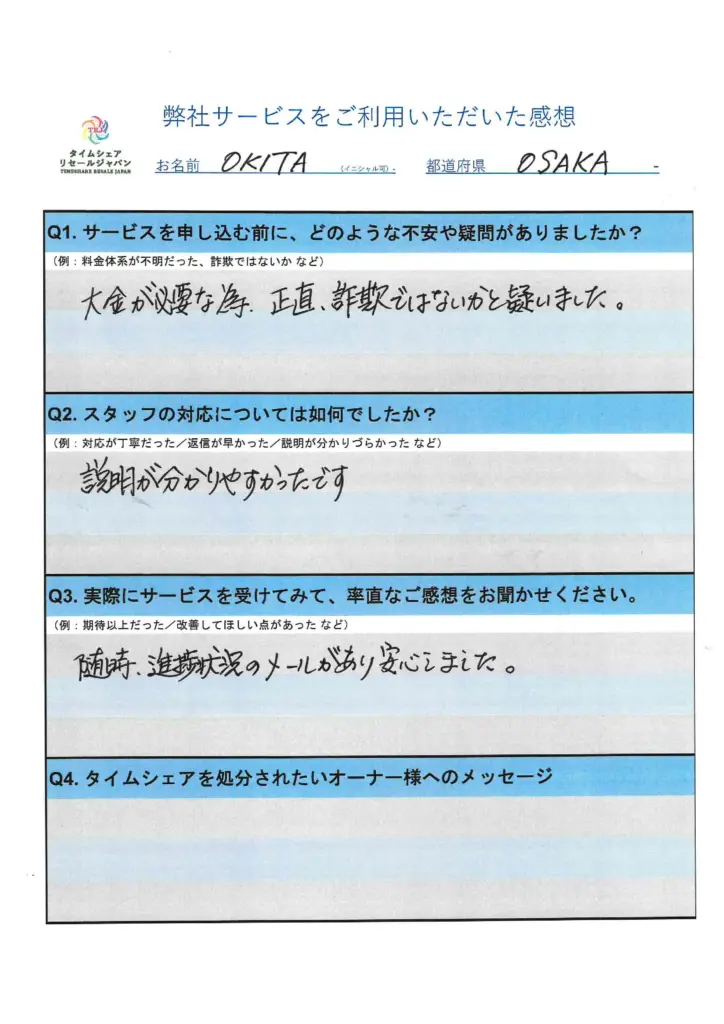 弊社サービスをご利用いただいた感想
タイムシェア
リセールジャパン
TIMESHARE RESALE JAPAN
お名前 OKITA (イニシャル可)- 都道府県 OSAKA -
Q1. サービスを申し込む前に、どのような不安や疑問がありましたか？
（例：料金体系が不明だった、詐欺ではないか など）
大金が必要な為、正直、詐欺ではないかと疑いました。
Q2. スタッフの対応については如何でしたか？
（例：対応が丁寧だった／返信が早かった／説明が分かりづらかった など）
説明が分かりやすかったです
Q3. 実際にサービスを受けてみて、率直なご感想をお聞かせください。
（例：期待以上だった／改善してほしい点があった など）
随時、進捗状況のメールがあり安心しました。
Q4. タイムシェアを処分されたいオーナー様へのメッセージ